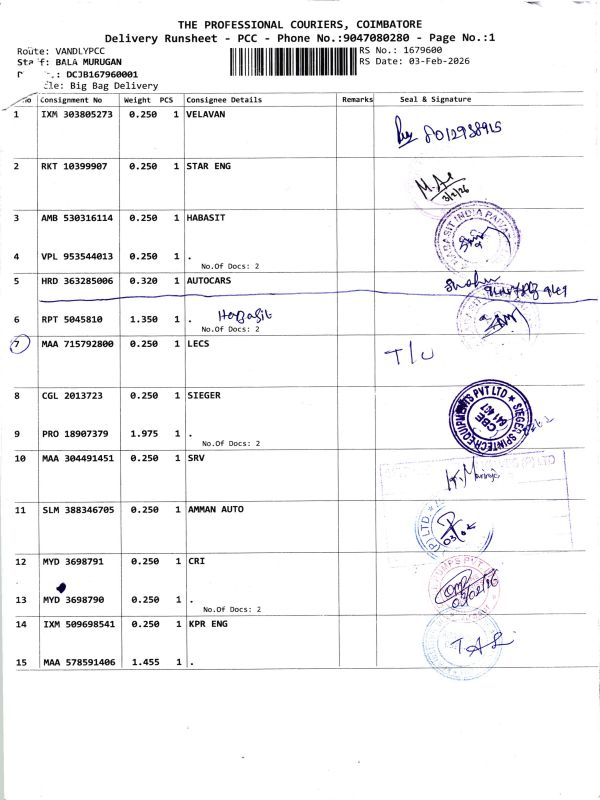 THE PROFESSIONAL COURIERS, COIMBATORE
Delivery Runsheet - PCC - Phone No.:9047080280 - Page No.:1
Route: VANDLYPCC RS No.: 1679600
BALA MURUGAN RS Date: 03-Feb-2026
DCJB167960001
Big Bag Delivery
Consignment No Weight PCS Consignee Details Remarks Seal & Signature
1 IXM 303805273 0.250 1 VELAVAN
8012938915
2 RKT 10399907 0.250 1 STAR ENG
3/2/26
3 AMB 530316114 0.250 1 HABASIT
4 VPL 953544013 0.250 1 .
No.Of Docs: 2
5 HRD 363285006 0.320 1 AUTOCARS
6 RPT 5045810 1.350 1 . Habasit
No.Of Docs: 2
7 MAA 715792800 0.250 1 LECS T/U
8 CGL 2013723 0.250 1 SIEGER
SIEGER SPINTECH EQUIPMENTS PVT LTD
CBE
641 407
9 PRO 18907379 1.975 1 .
No.Of Docs: 2
10 MAA 304491451 0.250 1 SRV
11 SLM 388346705 0.250 1 AMMAN AUTO
12 MYD 3698791 0.250 1 CRI
03/02/26
13 MYD 3698790 0.250 1 .
No.Of Docs: 2
14 IXM 509698541 0.250 1 KPR ENG
15 MAA 578591406 1.455 1 .